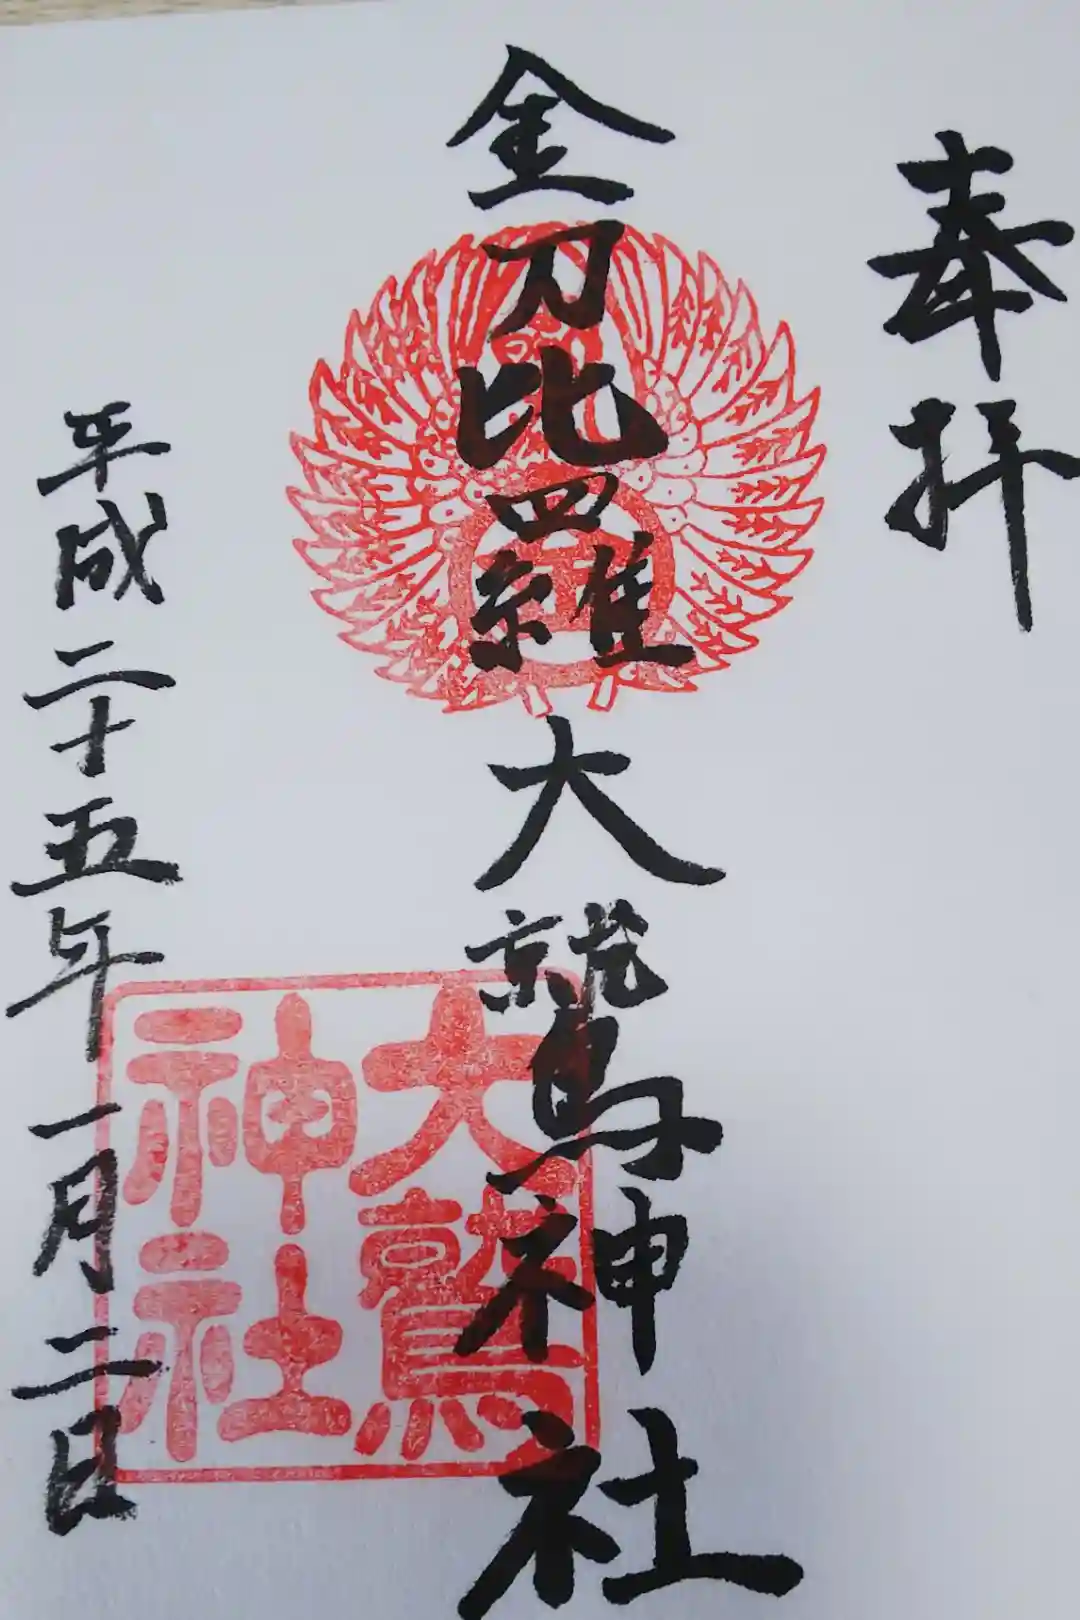 奉拝
金刀比羅大鷲神社
大鷲
神社
平成二十五年一月二日